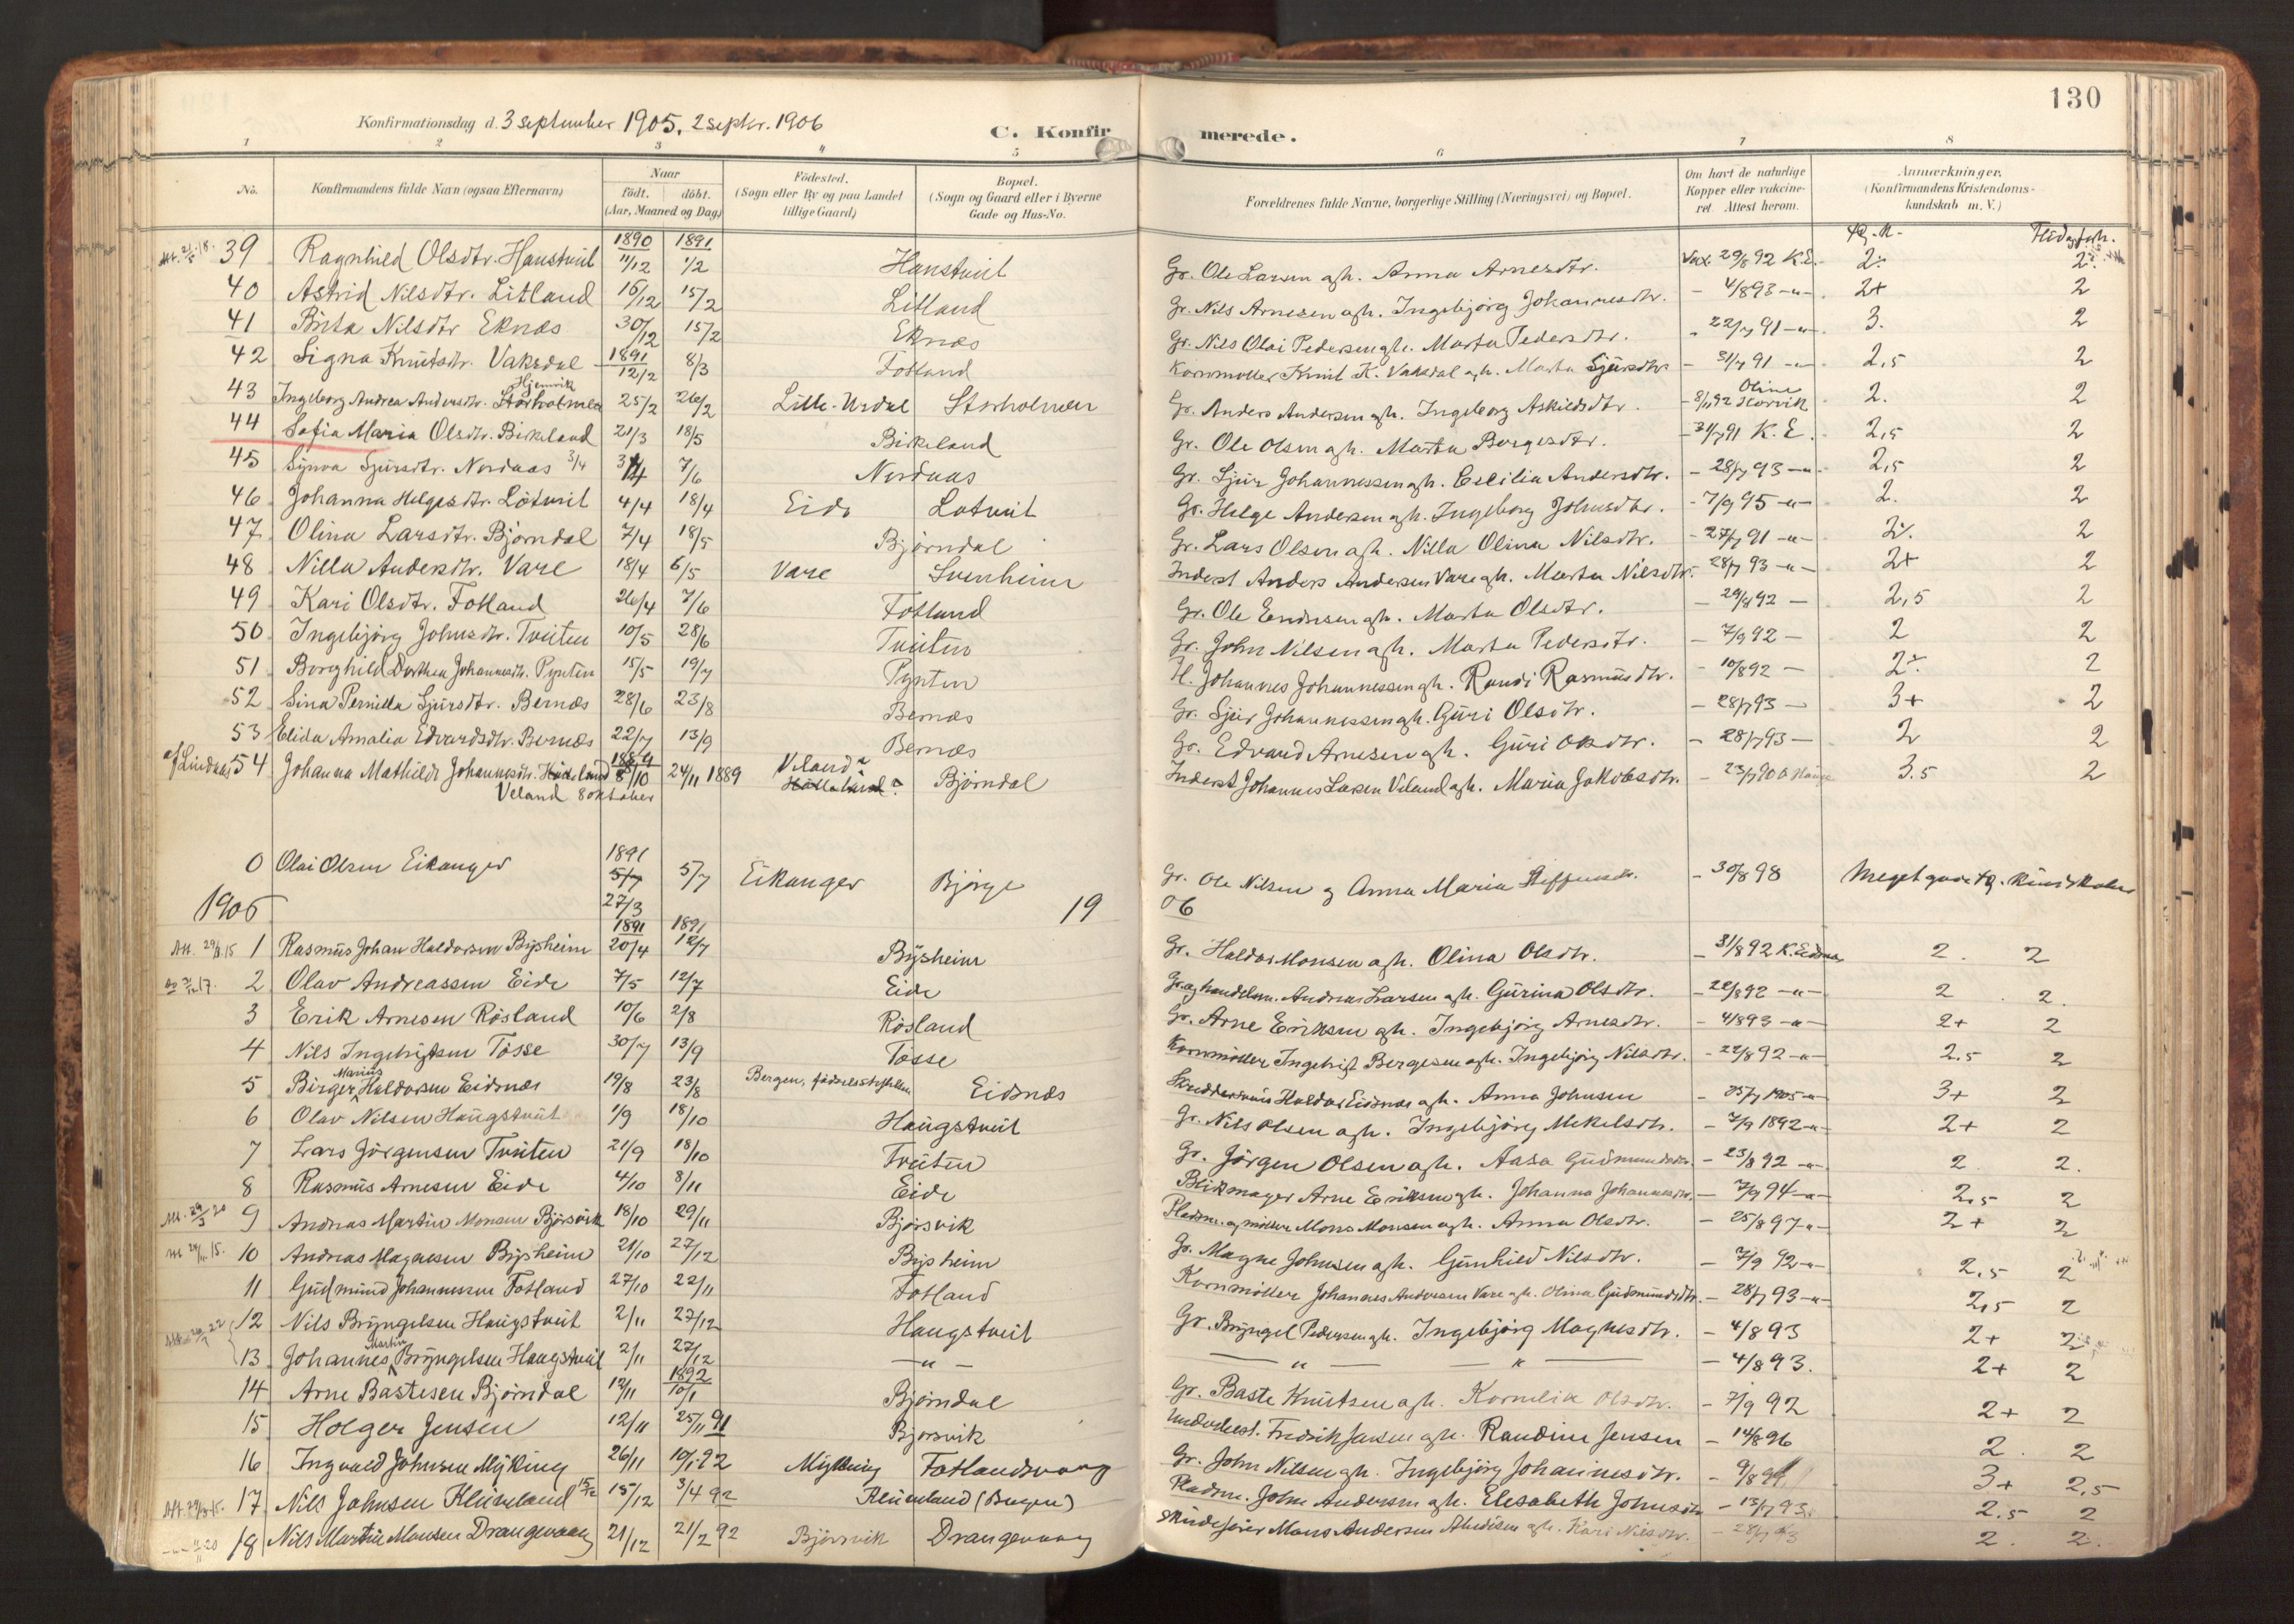 130
Konfirmationsdag d. 3 september 1905. 2 septr. 1906
C. Konfirmerede.
1 2 3 4 5 6 7 8
No. Konfirmandens fulde Navn (ogsaa Efternavn) Naar født. døbt. (Aar, Maaned og Dag) Fødested. (Sogn eller By og paa Landet tillige Gaard) Bopæl. (Sogn og Gaard eller i Byerne Gade og Hus-No. Forældrenes fulde Navne, borgerlige Stilling (Næringsvei) og Bopæl. Om havt de naturlige Kopper eller vaksineret. Attest herom. Anmærkninger, (Konfirmandens Kristendomskundskab m. V.)
39 Ragnhild Olsdtr. Hanstveit 1890 11/12 1891 1/2 Hanstveit Gr. Ole Larsen o. h. Anna Arnesdtr. Vax 29/8 92 K.E.
40 Astrid Nilsdtr. Litland 16/12 15/2 Litland Gr. Nils Arnesen o. h. Ingebjörg Johannesdtr. - 4/8 93 -"- 2+ 2
41 Brita Nilsdtr Eknæs 30/12 15/2 Eknæs Gr. Nils Olai Pedersen o. h. Marta Pedersdtr. - 22/7 91 -"- 3. 2
42 Signa Knutsdtr. Vaksdal 1891 12/2 8/3 Fotland Kornmøller Knut K. Vaksdal o. h. Marta Sjursdtr - 31/7 91 -"- 2,5 2
43 Ingeborg Andrea Andersdtr. Storholmen Hjemvik 25/2 26/2 Lille-Urdal Storholmen Gr. Anders Andersen o. h. Ingeborg Askildsdtr. - 8/11 92 Oline Horvik 2. 2
44 Sofia Maria Olsdtr. Birkeland 21/3 18/5 Birkeland Gr. Ole Olsen o. h. Marta Borgesdtr. - 31/7 91 K. E. 2,5 2
45 Synva Sjursdtr. Nordaas 3/4 7/6 Nordaas Gr. Sjur Johannessen o. h. Cecilia Andersdtr. - 28/7 93 -"- 2,5 2
46 Johanna Helgesdtr. Lötveit 4/4 18/4 Eide Lötveit Gr. Helge Andersen o. h. Ingeborg Johnsdtr. - 7/9 95 -"- 2. 2
47 Olina Larsdtr. Björndal 7/4 18/5 Björndal Gr. Lars Olsen o. h. Nilla Olina Nilsdtr. - 27/7 91 -"- 2
48 Nilla Andersdtr. Vare 18/4 6/5 Vare Svenheim Inderst Anders Andersen Vare o. h. Marta Nilsdtr. 28/7 93 -"- 2+ 2
49 Kari Olsdtr. Fotland 26/4 7/6 Fotland Gr. Ole Endresen o. h. Marta Olsdtr. - 29/8 92 - 2,5 2
50 Ingebjörg Johnsdtr. Tveiten 10/5 28/6 Tveiten Gr. John Nilsen o. h. Marta Pedersdtr. - 7/9 92 - 2 2
51 Borghild Dorthea Johannesdtr. Pynten 15/5 19/7 Pynten H. Johannes Johannessen o. h. Randi Rasmusdtr. - 10/8 92 - 2
52 Sina Pernilla Sjursdtr. Bernæs 28/6 23/8 Bernæs Gr. Sjur Johannessen o. h. Guri Olsdtr. - 28/7 93 - 3+ 2
53 Elida Amalia Edvardsdtr. Bernæs 22/7 13/9 Bernæs Gr. Edvard Arnesen o. h. Guri Olsdtr. - 28/7 93 - 2 2
af Lindaas 54 Johanna Mathilde Johannesdtr. 1889 8/10 24/11 1889 Veland Björndal Inderst Johannes Larsen Veland o. h. Maria Jakobsdtr. - 23/7 90 3.5 2
Veland 8 oktober
0 Olai Olsen Eikanger 1891 5/7 27/3 5/7 Eikanger Bjørge Gr. Ole Nilsen og Anna Maria - 30/8 98 Meget
1906 1906
Att. 29/3 15 1 Rasmus Johan Haldorsen Bysheim 1891 20/4 1891 12/7 Bysheim Gr. Haldor Monsen o. h. Olina Olsdtr. - 31/8 92 K. Eidsnæs 2. 2
2 Olav Andreassen Eide 7/5 12/7 Eide Gr. og handelsm. Andreas Larsen o. h. Gurina Olsdtr. - 22/8 92 -"- 2 2.
3 Erik Arnesen Røsland 10/6 2/8 Røsland Gr. Arne Eriksen o. h. Ingebjörg Arnesdtr. - 4/8 93 -"- 2+ 2
4 Nils Ingebrigtsen Tösse 30/7 13/9 Tösse Kornmöller Ingebrigt Bergesen o. h. Ingebjörg Nilsdtr. - 22/8 92 -"- 2.5 2
5 Birger Marius Haldorsen Eidsnæs 19/8 23/8 Bergen, fødselsstiftelsen Eidsnæs Haldor Eidsnæs o. h. Anna Johnsen - 25/7 1905 -"- 3+ 2
6 Olav Nilsen Haugstveit 1/9 18/10 Haugstveit Gr. Nils Olsen o. h. Ingebjörg Mikelsdtr. - 7/9 1892 -"- 2+ 2
7 Lars Jörgensen Tveiten 21/9 18/10 Tveiten Gr. Jörgen Olsen o. h. Aasa Gudmundsdtr. - 23/8 92 -"- 2 2.
8 Rasmus Arnesen Eide 4/10 8/11 Eide Blikmager Arne Eriksen o. h. Johanna Johannesdtr. - 7/9 94 -"- 2,5 2
9 Andreas Martin Monsen Bjørsvik 18/10 29/11 Bjørsvik Pladsm. og møller Mons Monsen o. h. Anna Olsdtr. - 25/8 97 -"- 2+ 2
10 Andreas Magnesen Bysheim 21/10 27/12 Bysheim Gr. Magne Johnsen o. h. Gunhild Nilsdtr. - 7/9 92 -"- 2,5 2
11 Gudmund Johannessen Fotland 27/10 22/11 Fotland Kornmöller Johannes Andersen Vare o. h. Olina Gudmundsdtr. - 28/7 93 -"- 2,5 2
12 Nils Bryngelsen Haugstveit 2/11 27/12 Haugstveit Gr. Bryngel Pedersen o. h. Ingebjörg Magnesdtr. - 4/8 93 2+ 2
13 Johannes Martin Bryngelsen Haugstveit 2/11 27/12 -"- -"- -"- - 4/8 93. 2+ 2
14 Arne Bastesen Björndal 12/11 1892 10/1 Björndal Gr. Baste Knutsen o. h. Kornelia Olsdtr. - 7/9 92 2+ 2
15 Holger Jensen 12/11 25/11 91 Bjørsvik Fredrik Jensen o. h. Randine Jensen - 14/8 96 2. 2
16 Ingvald Johnsen Myking 26/11 10/1 92 Myking Fotlandsvaag Gr. John Nilsen o. h. Ingebjörg Johannesdtr. - 9/8 94 3+ 2,5
17 Nils Johnsen Kluseland 15/12 15/12 3/4 92 Kluseland (Bergen) Pladsm. John Andersen o. h. Elisabeth Johnsdtr - 13/7 93. 2.5 2
18 Nils Martin Monsen Drangevaag 21/12 21/2 92 Bjørsvik Drangevaag Skudefører Mons Andersen o. h. Kari Nilsdtr. - 28/7 93 2. 2.